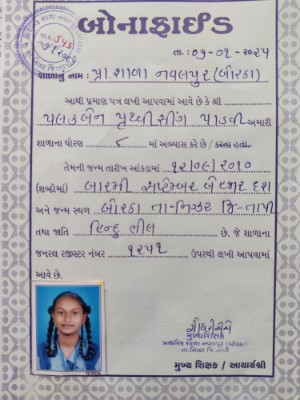 બોનાફાઈડ
તા. : ૦૧-૦૨-૨૦૨૫
શાળાનું નામ : પ્રા. શાળા નવલપુર (બોરઠા)
આથી પ્રમાણ પત્ર લખી આપવામાં આવે છે કે શ્રી
પલકબેન પૃથ્વીસીંગ પાડવી અમારી
શાળાના ધોરણ ૮ માં અભ્યાસ કરે છે / કરતા હતા.
તેમની જન્મ તારીખ આંકડામાં ૧૨/૦૯/૨૦૧૦
(શબ્દોમાં) બારમી સપ્ટેમ્બર બે હજાર દશ
અને જન્મ સ્થળ બોરઠા તા-નિઝર જિ-તાપી
તથા જાતિ હિન્દુ ભીલ છે. જે શાળાના
જનરલ રજીસ્ટર નંબર ૧૨૫૧ ઉપરથી લખી આપવામાં
આવે છે.
મુખ્યશિક્ષક
પ્રાથમિક શાળા નવલપુર (બોરઠા)
તા.નિઝર જિ.તાપી
મુખ્ય શિક્ષક / આચાર્યશ્રી